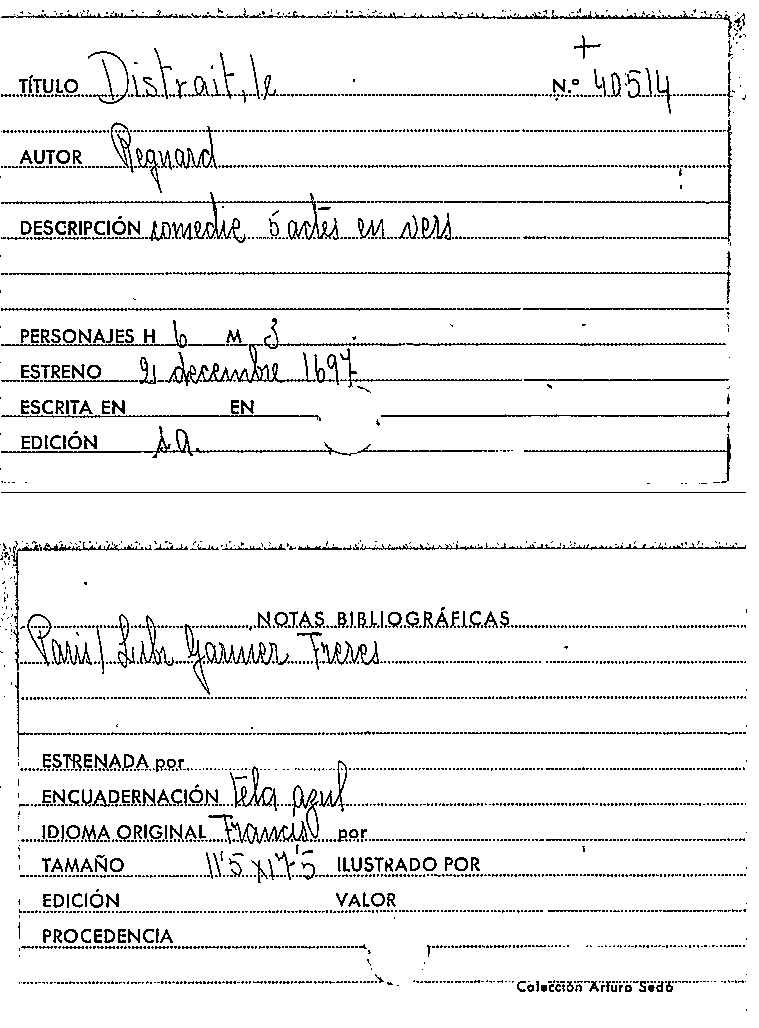 +
TÍTULO Distrait, le N.º 40514
AUTOR Regnard
DESCRIPCIÓN comedie 5 actes en vers
PERSONAJES H 6 M 3
ESTRENO 2 decembre 1697
ESCRITA EN EN
EDICIÓN s.a.
NOTAS BIBLIOGRÁFICAS
Paris/ Libr Garnier Freres
ESTRENADA por
ENCUADERNACIÓN tela azul
IDIOMA ORIGINAL Francis por
TAMAÑO 11'5 x 17'5 ILUSTRADO POR
EDICIÓN VALOR
PROCEDENCIA
Colección Arturo Sedó